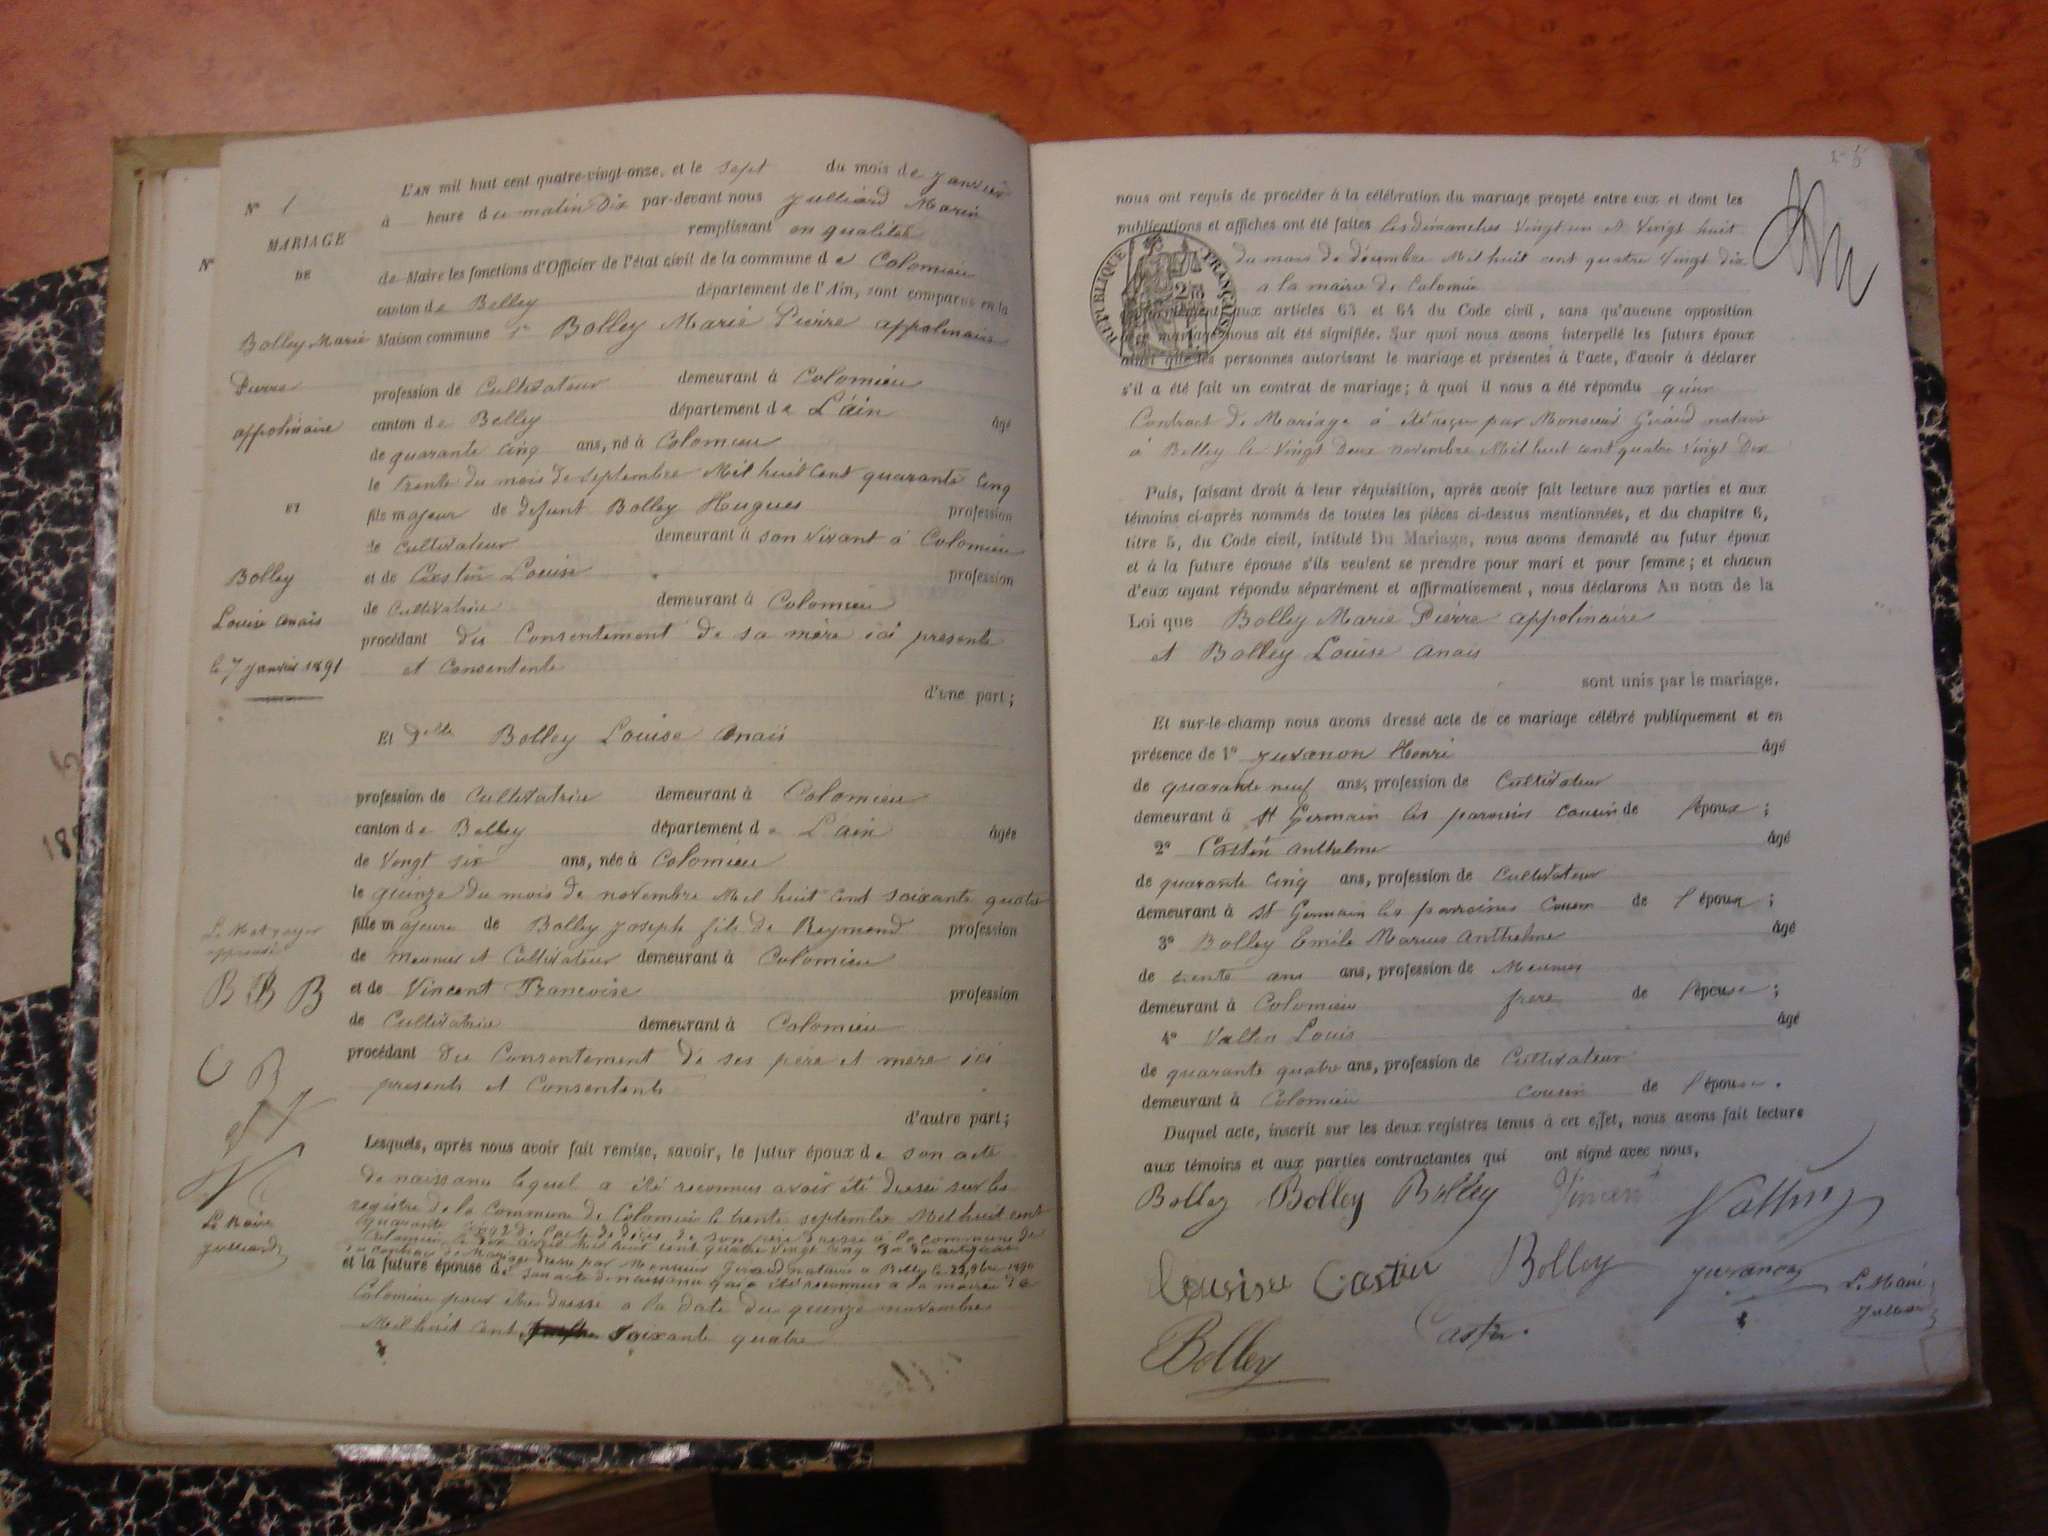 N° 1
MARIAGE
N°
DE
Bolley Marie
Pierre
appolinaire
ET
Bolley
Louise anais
le 7 janvier 1891
B B B
C B
Le Maire
Julliard
L'AN mil huit cent quatre-vingt-onze, et le sept du mois de janvier
à heure du matin Dix par-devant nous Julliard Marin
remplissant en qualité
de Maire les fonctions d'Officier de l'état civil de la commune de Colomieu
canton de Belley département de l'Ain, sont comparus en la
Maison commune 1° Bolley Marie Pierre appolinaire
profession de Cultivateur demeurant à Colomieu
canton de Belley département de L'ain âgé
de quarante Cinq ans, né à Colomieu
le trente du mois de Septembre Mil huit Cent quarante Cinq
fils majeur de defunt Bolley Hugues profession
de Cultivateur demeurant à son vivant à Colomieu
et de Castin Louise profession
de Cultivatrice demeurant à Colomieu
procédant du Consentement de sa mère ici presente
et Consentente
d'une part;
Et Delle Bolley Louise Anais
profession de Cultivatrice demeurant à Colomieu
canton de Belley département de L'ain âgée
de Vingt six ans, née à Colomieu
le quinze du mois de novembre Mil huit Cent soixante quatre
fille majeure de Bolley joseph fils de Reymond profession
de Meunier et Cultivateur demeurant à Colomieu
et de Vincent Francoise profession
de Cultivatrice demeurant à Colomieu
procédant du Consentement de ses père et mere ici
presents et Consentents
d'autre part;
Lesquels, après nous avoir fait remise, savoir, le futur époux de son acte
de naissance lequel a été reconnus avoir été dressé sur les
registre de la Commune de Colomieu le trente septembre Mil huit cent
quarante cinq 2° de l'acte de décès de son père dressé à la commune de
Colomieu le dix avril mil huit cent quatre vingt cinq 3°
du contrat de Mariage dressé par Monsieur Giraud notaire a Belley le 22, 9bre 1890
et la future épouse de son acte de naissance qui a été reconnus a la mairie de
Colomieu pour etre dressé a la date du quinze novembre
Mil huit cent soixante quatre
nous ont requis de procéder à la célébration du mariage projeté entre eux et dont les
publications et affiches ont été faites les dimanches Vingt un et Vingt huit
du mois de décembre Mil huit cent quatre Vingt dix
a la mairie de Colomieu
REPUBLIQUE FRANÇAISE
conformément aux articles 63 et 64 du Code civil, sans qu'aucune opposition
à ce mariage nous ait été signifiée. Sur quoi nous avons interpellé les futurs époux
ainsi que les personnes autorisant le mariage et présentes à l'acte, d'avoir à déclarer
s'il a été fait un contrat de mariage; à quoi il nous a été répondu qu'un
Contract de Mariage à été reçu par Monsieur Giraud notaire
à Belley le Vingt Deux novembre Mil huit cent quatre Vingt Dix
Puis, faisant droit à leur réquisition, après avoir fait lecture aux parties et aux
témoins ci-après nommés de toutes les pièces ci-dessus mentionnées, et du chapitre 6,
titre 5, du Code civil, intitulé Du Mariage, nous avons demandé au futur époux
et à la future épouse s'ils veulent se prendre pour mari et pour femme; et chacun
d'eux ayant répondu séparément et affirmativement, nous déclarons Au nom de la
Loi que Bolley Marie Pierre appolinaire
et Bolley Louise anais
sont unis par le mariage.
Et sur-le-champ nous avons dressé acte de ce mariage célébré publiquement et en
présence de 1° juvanon Henri âgé
de quarante neuf ans, profession de Cultivateur
demeurant à St Germain les paroisses cousin de l'époux;
2° Castin anthelme âgé
de quarante Cinq ans, profession de Cultivateur
demeurant à St Germain les paroisses Cousin de l'époux;
3° Bolley Emile Marius Anthelme âgé
de trente ans ans, profession de Meunier
demeurant à Colomieu frere de l'épouse;
4° Vallin Louis âgé
de quarante quatre ans, profession de Cultivateur
demeurant à Colomieu cousin de l'épouse.
Duquel acte, inscrit sur les deux registres tenus à cet effet, nous avons fait lecture
aux témoins et aux parties contractantes qui ont signé avec nous,
Bolley Bolley Bolley Vincent Vallin
Louise Castin Bolley juvanon Le Maire
Julliard
Bolley Castin